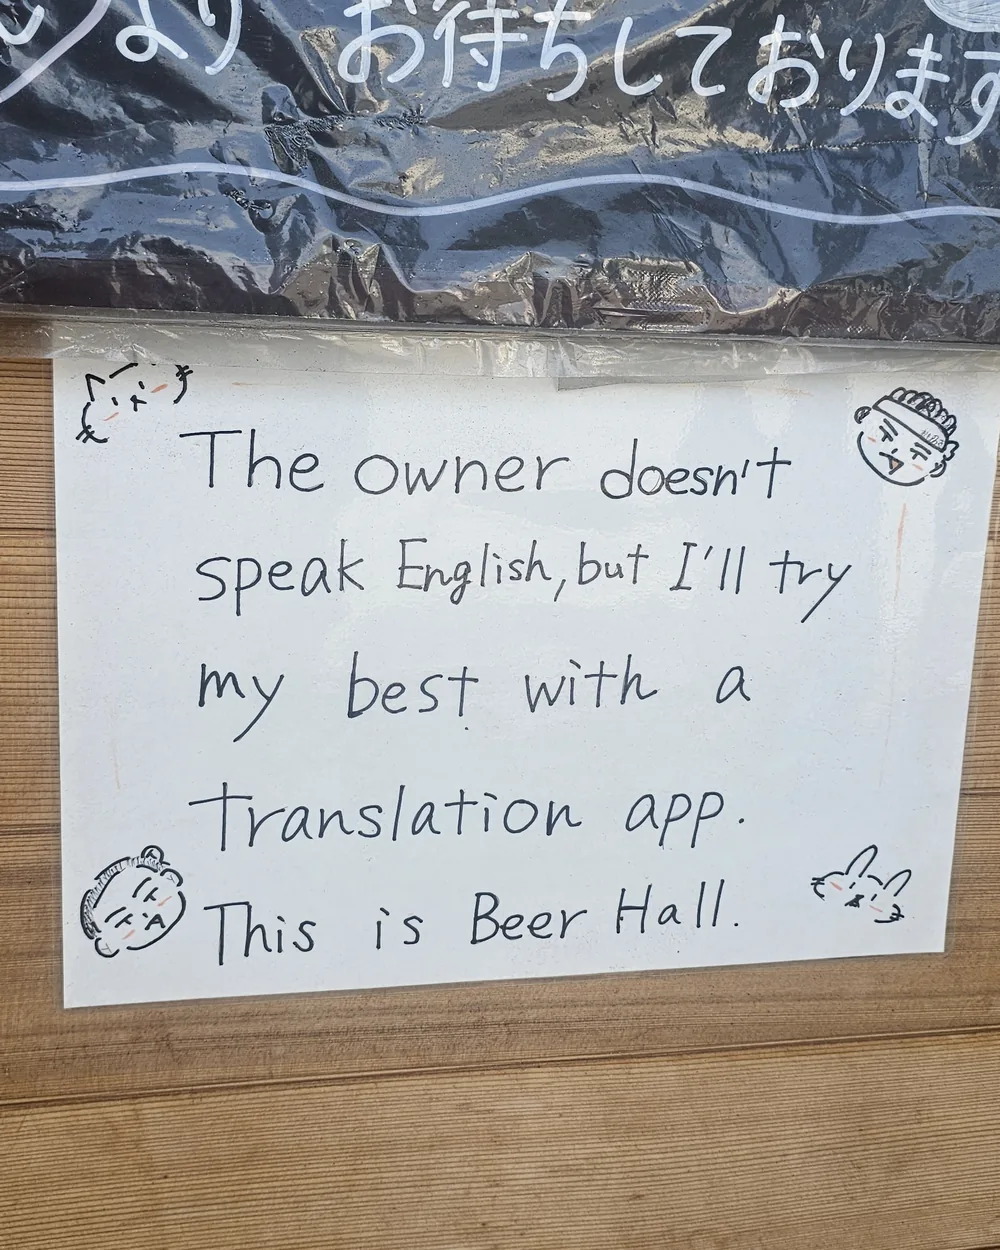 より お待ちしております
The owner doesn't
speak English, but I'll try
my best with a
translation app.
This is Beer Hall.